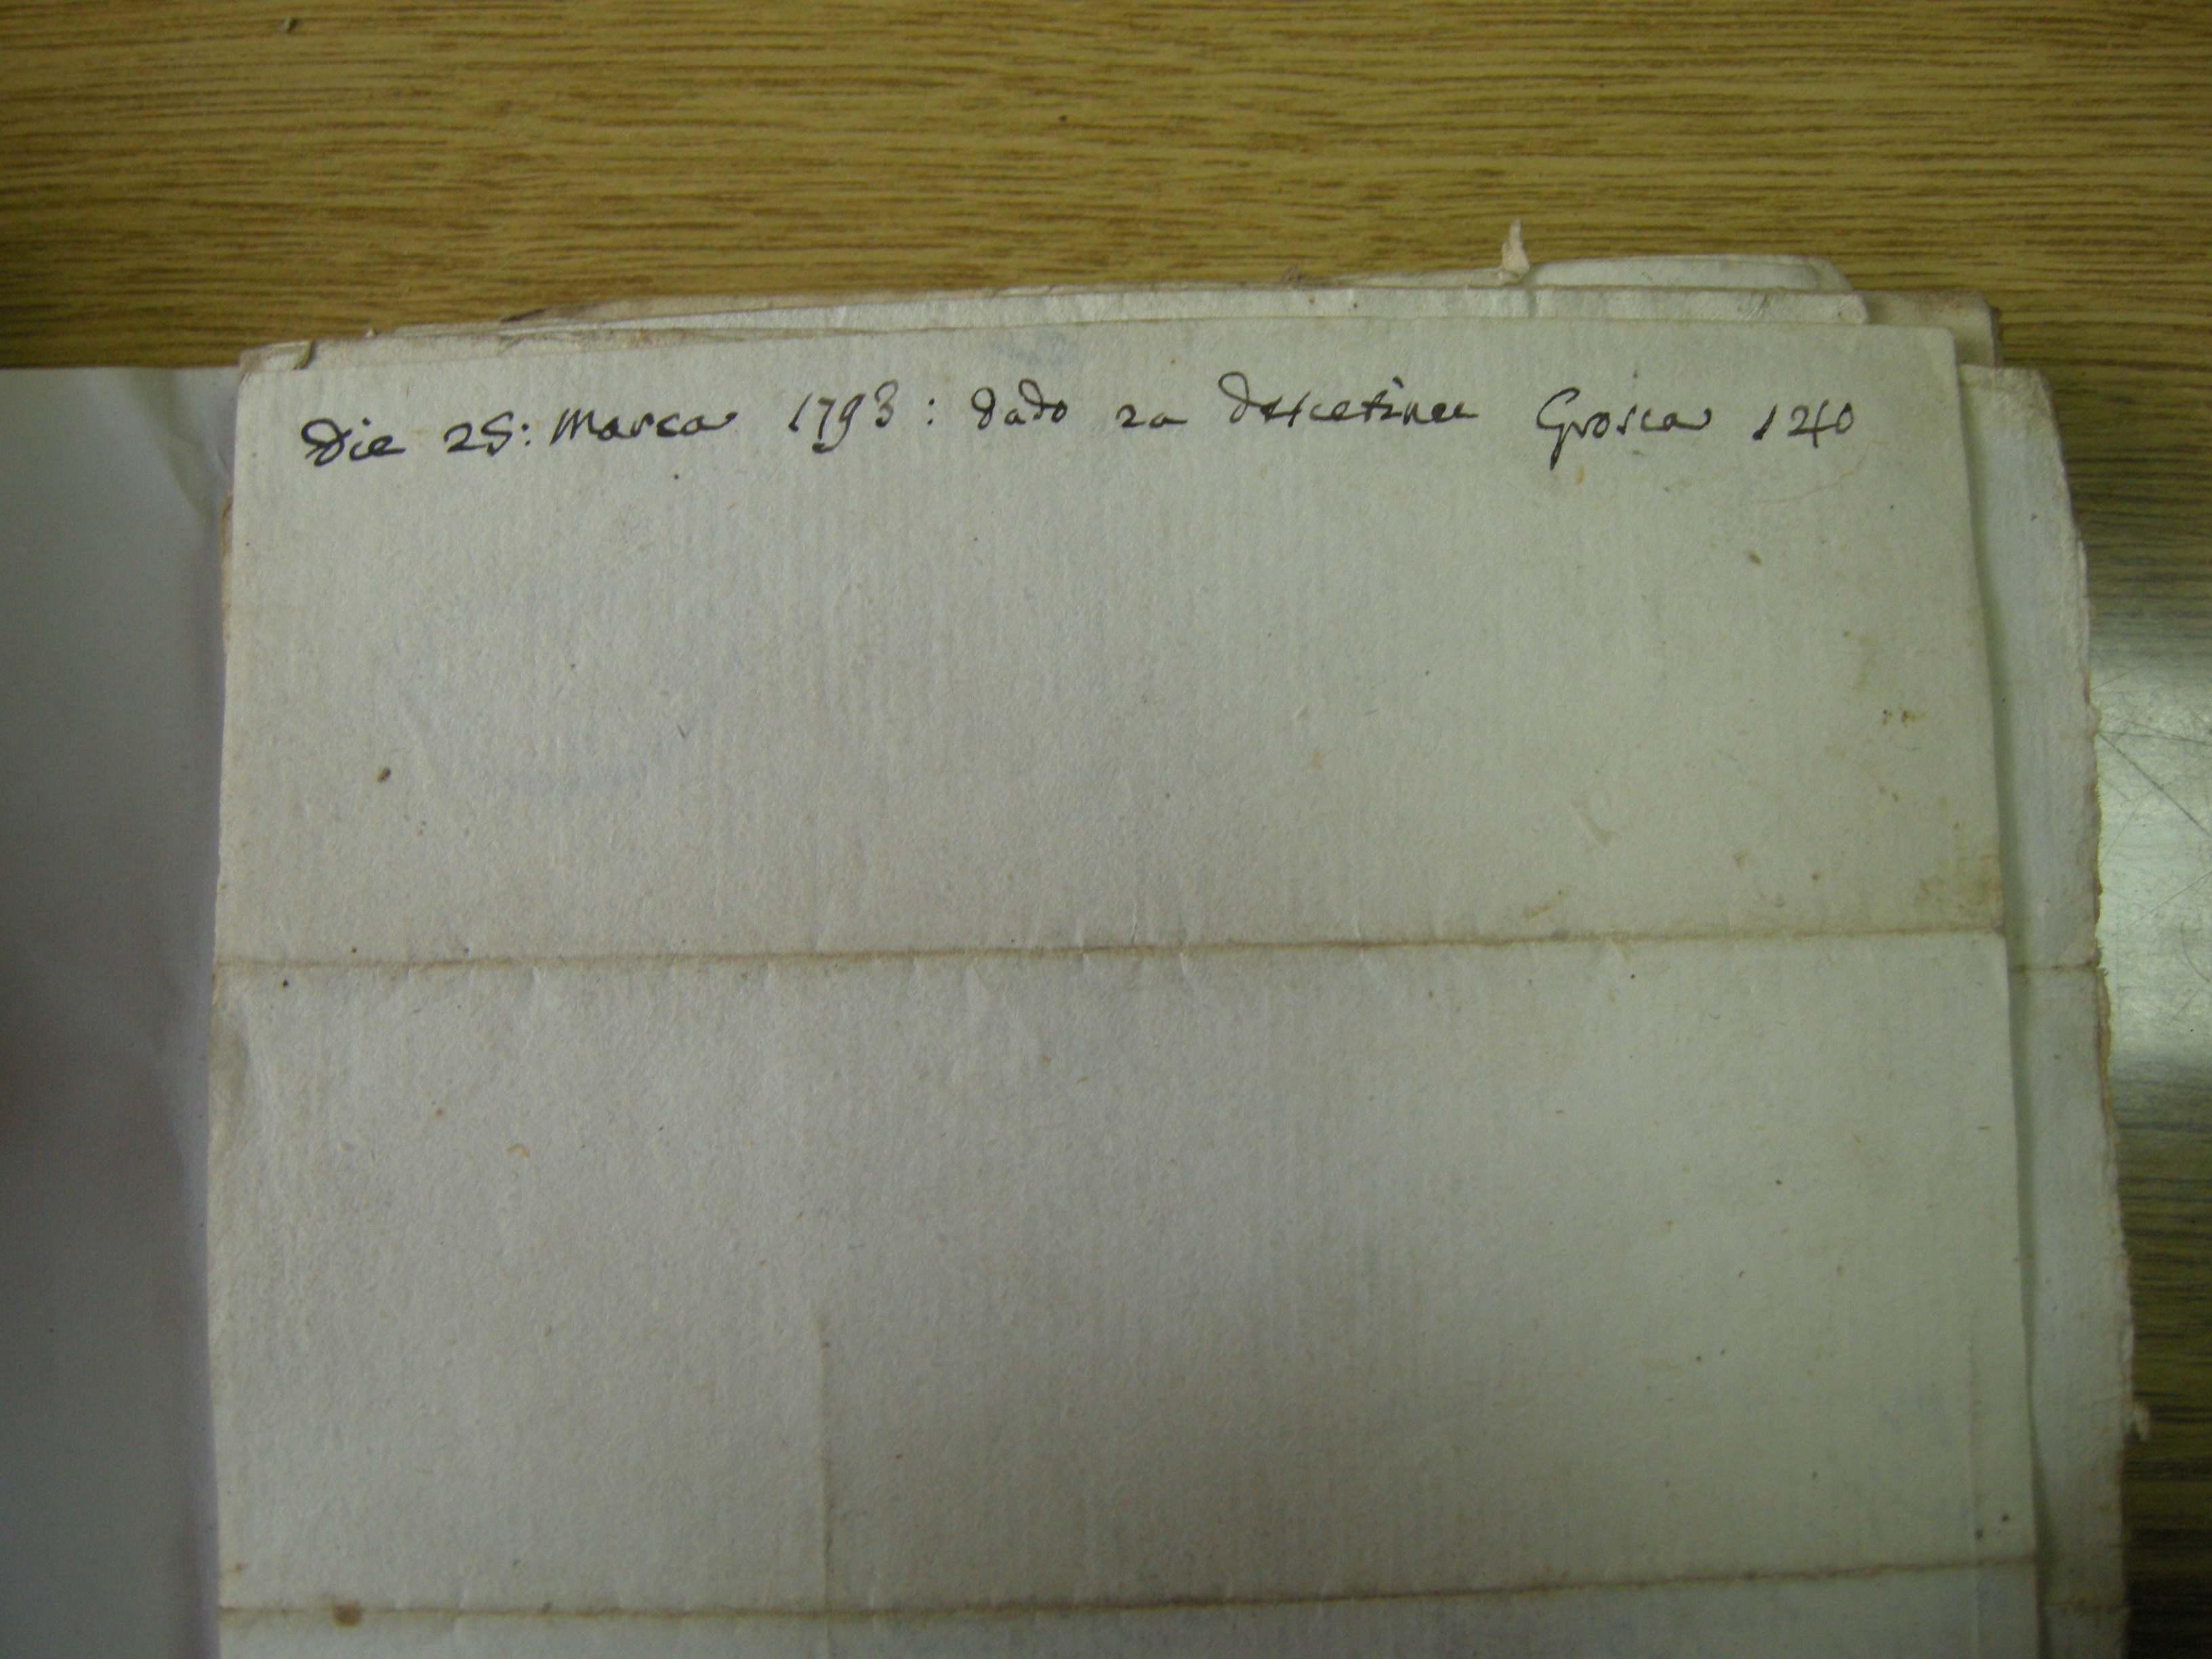 Die 25: Marca 1793: dado za desetinu Grosca 120